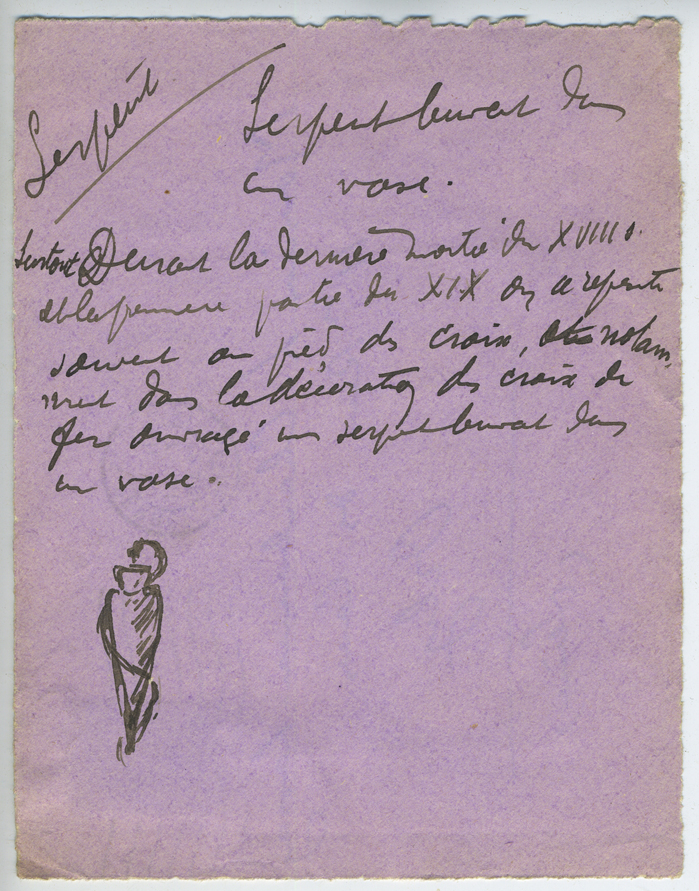 Serpent
Serpent buvant dans
un vase.
Surtout Durant la dernière moitié du XVIII s.
et la première partie du XIX on a représenté
souvent au pied des croix, notam-
ment dans la décoration des croix de
fer ouvragé un serpent buvant dans
un vase.